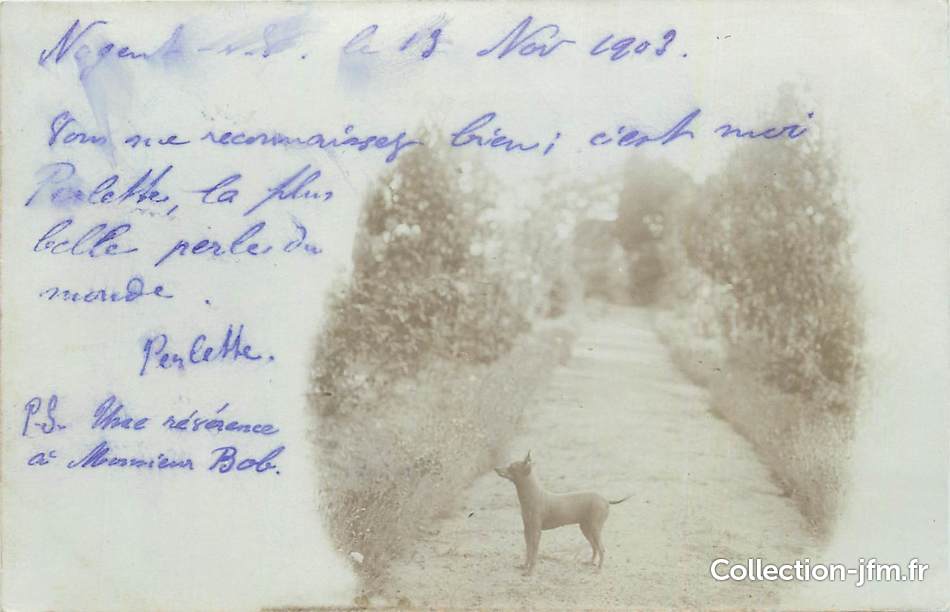 Nogent le 13 Nov 1903.
Vous me reconnaissez bien; c'est moi
Perlette, la plus
belle perle du
monde.
Perlette.
P.S. Une révérence
à Monsieur Bob.
Collection-jfm.fr